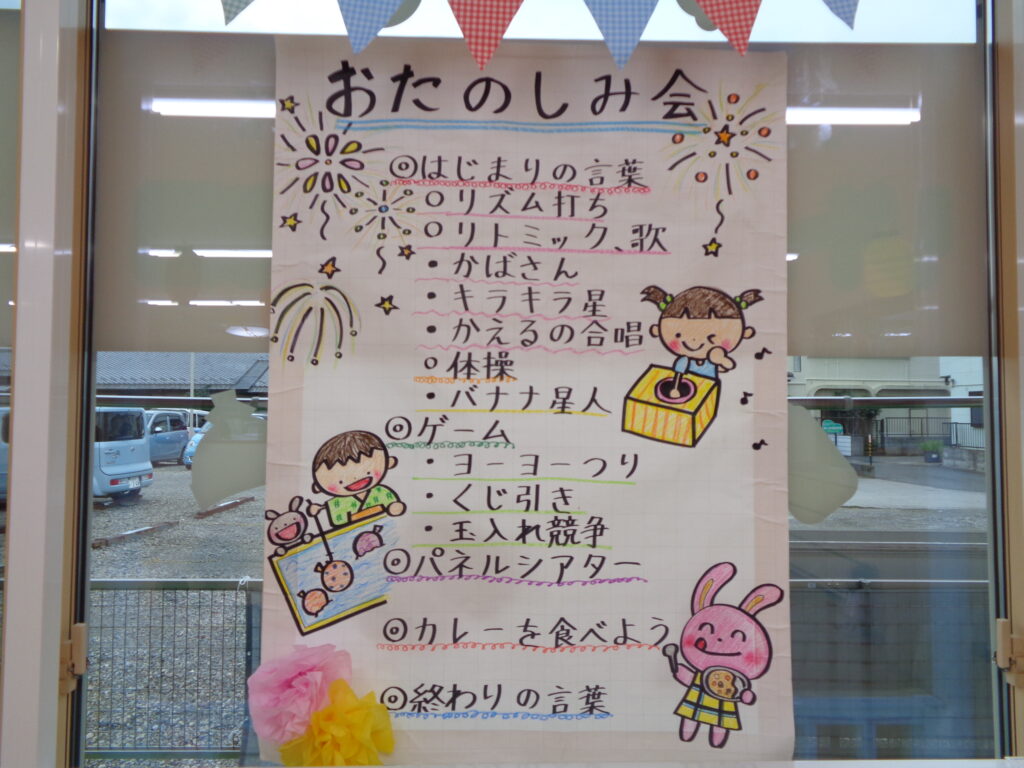 おたのしみ会
◎はじまりの言葉
○リズム打ち
○リトミック、歌
・かばさん
・キラキラ星
・かえるの合唱
○体操
・バナナ星人
◎ゲーム
・ヨーヨーつり
・くじ引き
・玉入れ競争
◎パネルシアター
◎カレーを食べよう
◎終わりの言葉